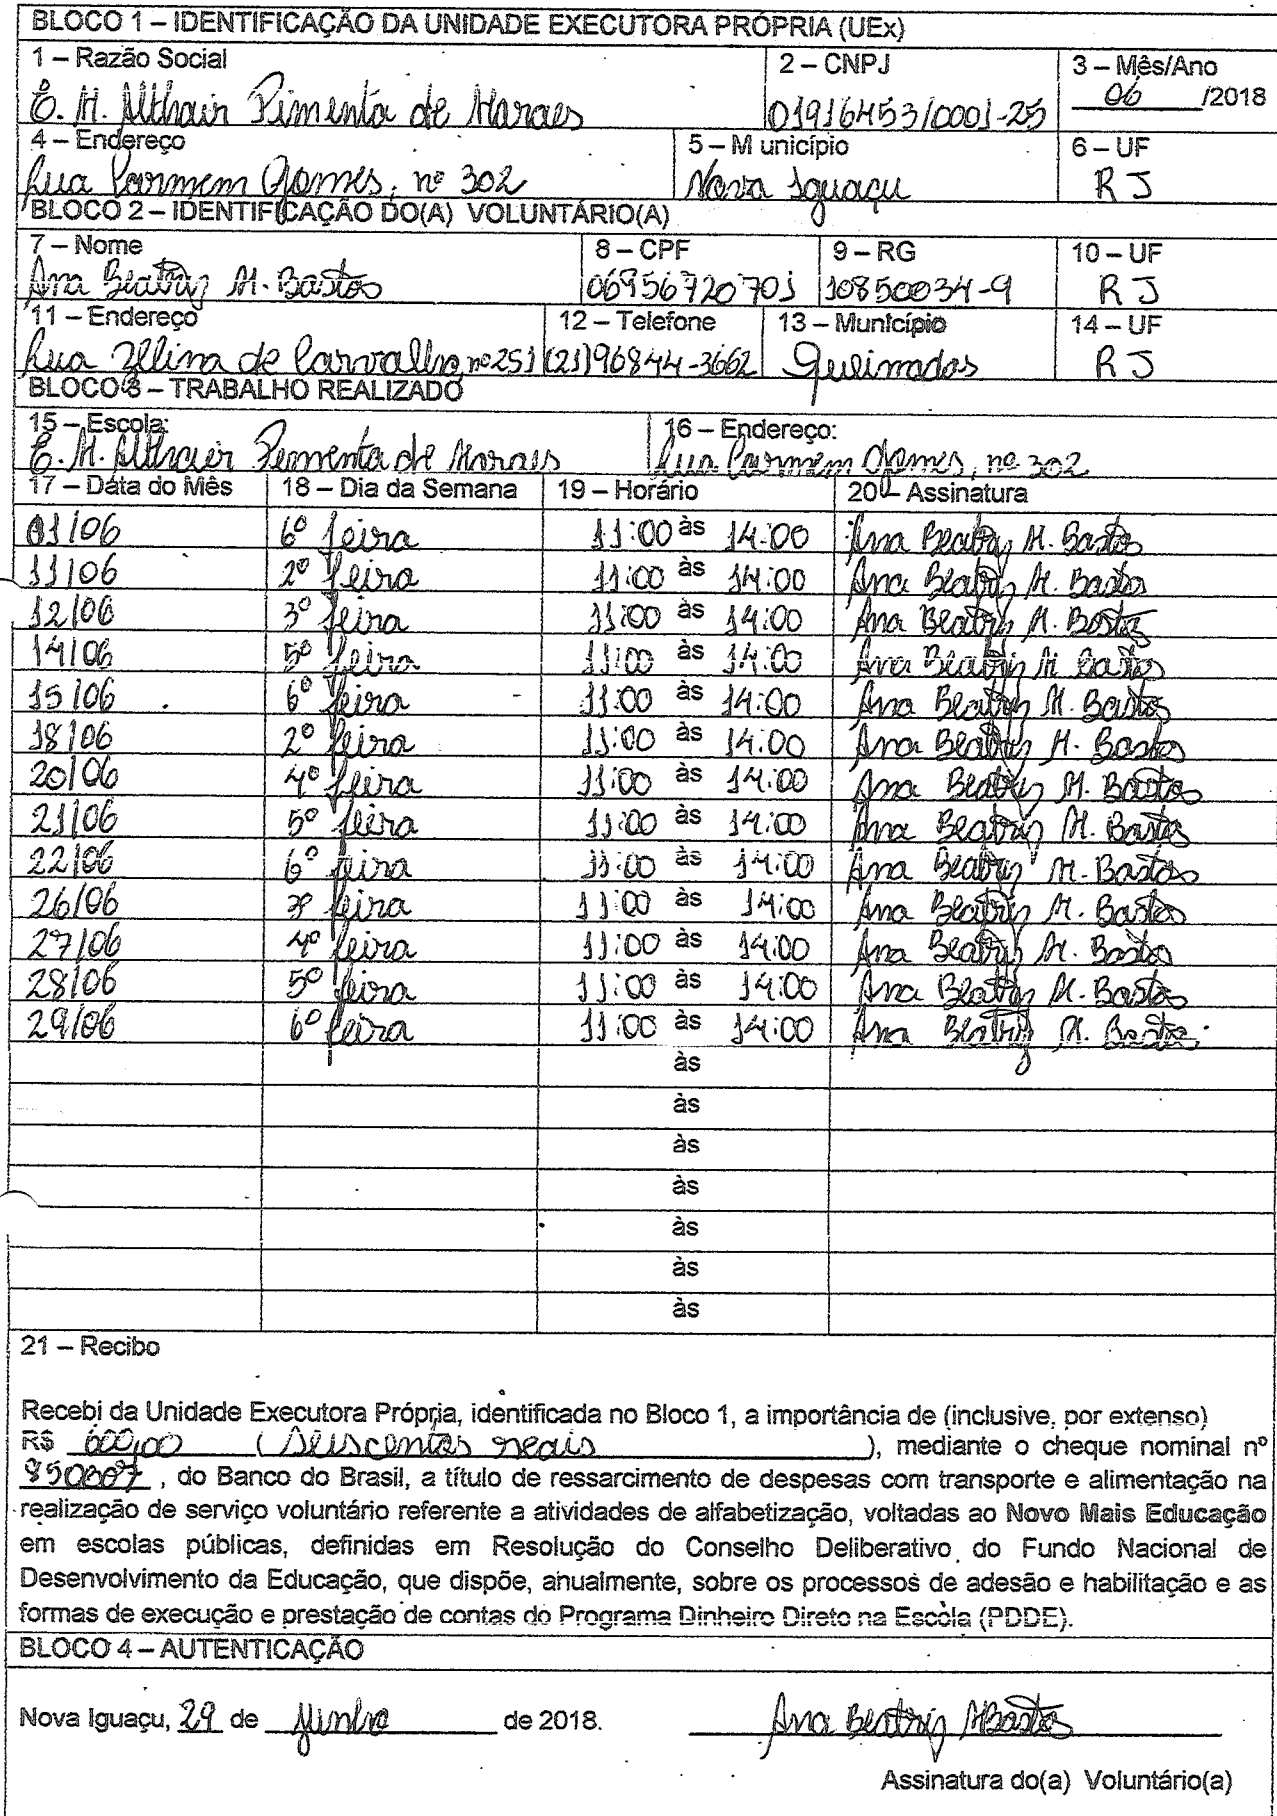 BLOCO 1 – IDENTIFICAÇÃO DA UNIDADE EXECUTORA PRÓPRIA (UEx)
1 – Razão Social 2 – CNPJ 3 – Mês/Ano
E. M. Althair Pimenta de Moraes 01916453/0001-25 06 /2018
4 – Endereço 5 – Município 6 – UF
Rua Carmem Gomes, nº 302 Nova Iguaçu RJ
BLOCO 2 – IDENTIFICAÇÃO DO(A) VOLUNTÁRIO(A)
7 – Nome 8 – CPF 9 – RG 10 – UF
Ana Beatriz M. Bastos 06956720701 10850034-9 RJ
11 – Endereço 12 – Telefone 13 – Município 14 – UF
Rua de Carvalho, nº 251 (21)96844-3662 Queimados RJ
BLOCO 3 – TRABALHO REALIZADO
15 – Escola: 16 – Endereço:
E. M. Althair Pimenta de Moraes Rua Carmem Gomes, nº 302
17 – Data do Mês 18 – Dia da Semana 19 – Horário 20 – Assinatura
01/06 6º feira 11:00 às 14:00 Ana Beatriz M. Bastos
11/06 2º feira 11:00 às 14:00 Ana Beatriz M. Bastos
12/06 3º feira 11:00 às 14:00 Ana Beatriz M. Bastos
14/06 5º feira 11:00 às 14:00 Ana Beatriz M Bastos
15/06 6º feira 11:00 às 14:00 Ana Beatriz M. Bastos
18/06 2º feira 11:00 às 14:00 Ana Beatriz M. Bastos
20/06 4º feira 11:00 às 14:00 Ana Beatriz M. Bastos
21/06 5º feira 11:00 às 14:00 Ana Beatriz M. Bastos
22/06 6º feira 11:00 às 14:00 Ana Beatriz M. Bastos
26/06 3º feira 11:00 às 14:00 Ana Beatriz M. Bastos
27/06 4º feira 11:00 às 14:00 Ana Beatriz M. Bastos
28/06 5º feira 11:00 às 14:00 Ana Beatriz M. Bastos
29/06 6º feira 11:00 às 14:00 Ana Beatriz M. Bastos
às
às
às
às
às
às
às
21 – Recibo
Recebi da Unidade Executora Própria, identificada no Bloco 1, a importância de (inclusive, por extenso)
R$ 600,00 (Seiscentos reais), mediante o cheque nominal nº
850807, do Banco do Brasil, a título de ressarcimento de despesas com transporte e alimentação na
realização de serviço voluntário referente a atividades de alfabetização, voltadas ao Novo Mais Educação
em escolas públicas, definidas em Resolução do Conselho Deliberativo do Fundo Nacional de
Desenvolvimento da Educação, que dispõe, anualmente, sobre os processos de adesão e habilitação e as
formas de execução e prestação de contas do Programa Dinheiro Direto na Escola (PDDE).
BLOCO 4 – AUTENTICAÇÃO
Nova Iguaçu, 29 de Junho de 2018. Ana Beatriz M Bastos
Assinatura do(a) Voluntário(a)